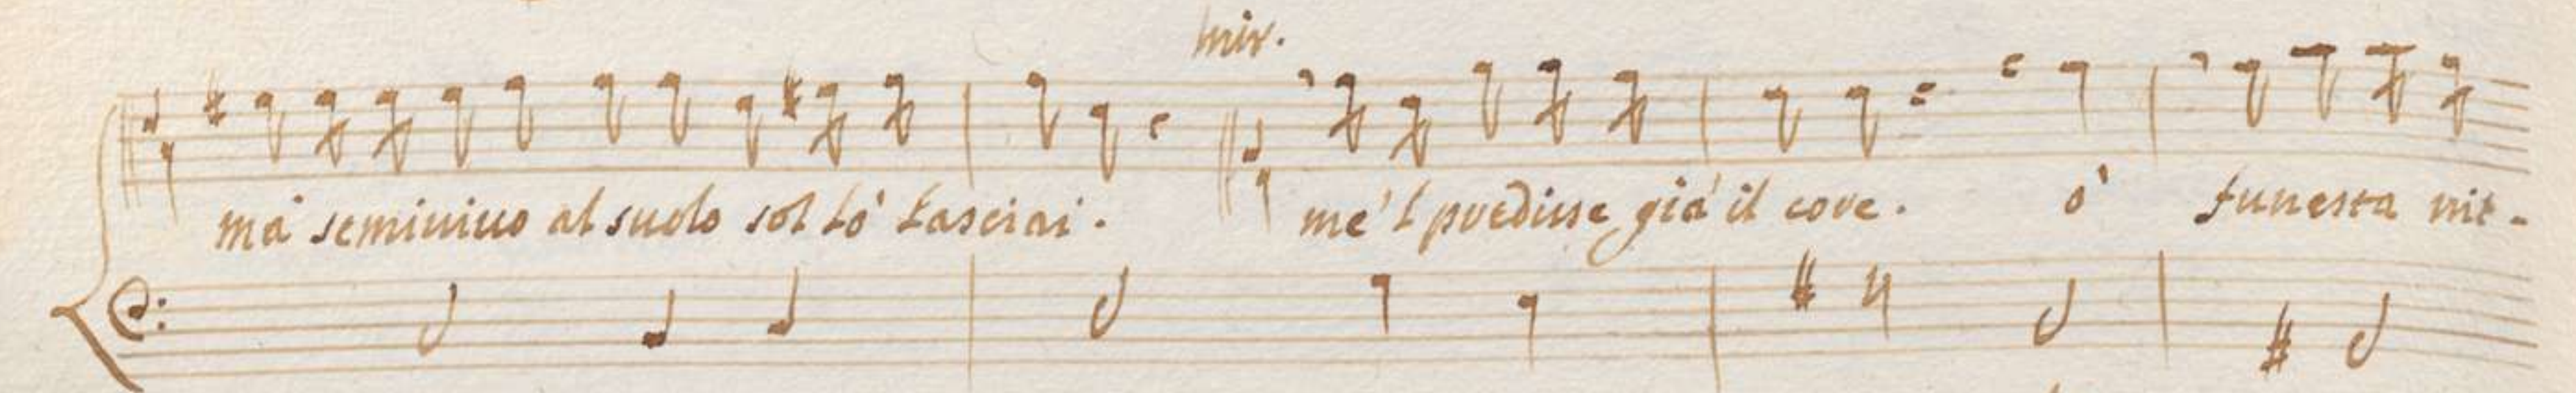 mir.
mà semiuiuo al suolo sol lò lasciai. me'l predisse già il core. ò funesta vit-